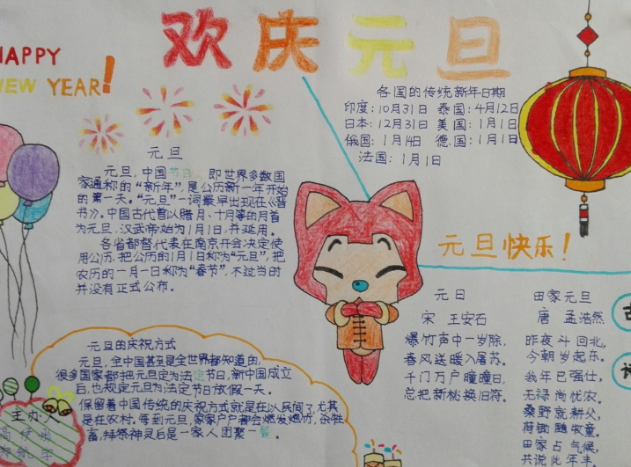 HAPPY
NEW YEAR!
欢庆元旦
各国的传统新年日期
印度：10月31日 泰国：4月12日
日本：12月31日 美国：1月1日
俄国：1月4日 德国：1月1日
法国：1月1日
元旦
元旦，中国节日，即世界多数国
家通称的“新年”，是公历新一年开始
的第一天。“元旦”一词最早出现在《晋
书》。中国古代曾以腊月、十月等的月首
为元旦，汉武帝始为1月1日，并延用。
各省都督代表在南京开会决定使
用公历，把公历的1月1日称为“元旦”，把
农历的一月一日称为“春节”，不过当时
并没有正式公布。
元旦快乐！
元日
宋 王安石
爆竹声中一岁除，
春风送暖入屠苏。
千门万户曈曈日，
总把新桃换旧符。
田家元旦
唐 孟浩然
昨夜斗回北，
今朝岁起东。
我年已强仕，
无禄尚忧农。
桑野就耕父，
荷锄随牧童。
田家占气候，
共说此年丰
元旦的庆祝方式
元旦，全中国甚至是全世界都知道的，
很多国家都把元旦定为法定节日，新中国成立
后，也规定元旦为法定节日放假一天。
保留着中国传统的庆祝方式就是在以民间了，尤其
是在农村。每到元旦，家家户户都会燃放爆竹，杀牲
畜，拜祭神灵后是一家人团聚一餐。
主办人